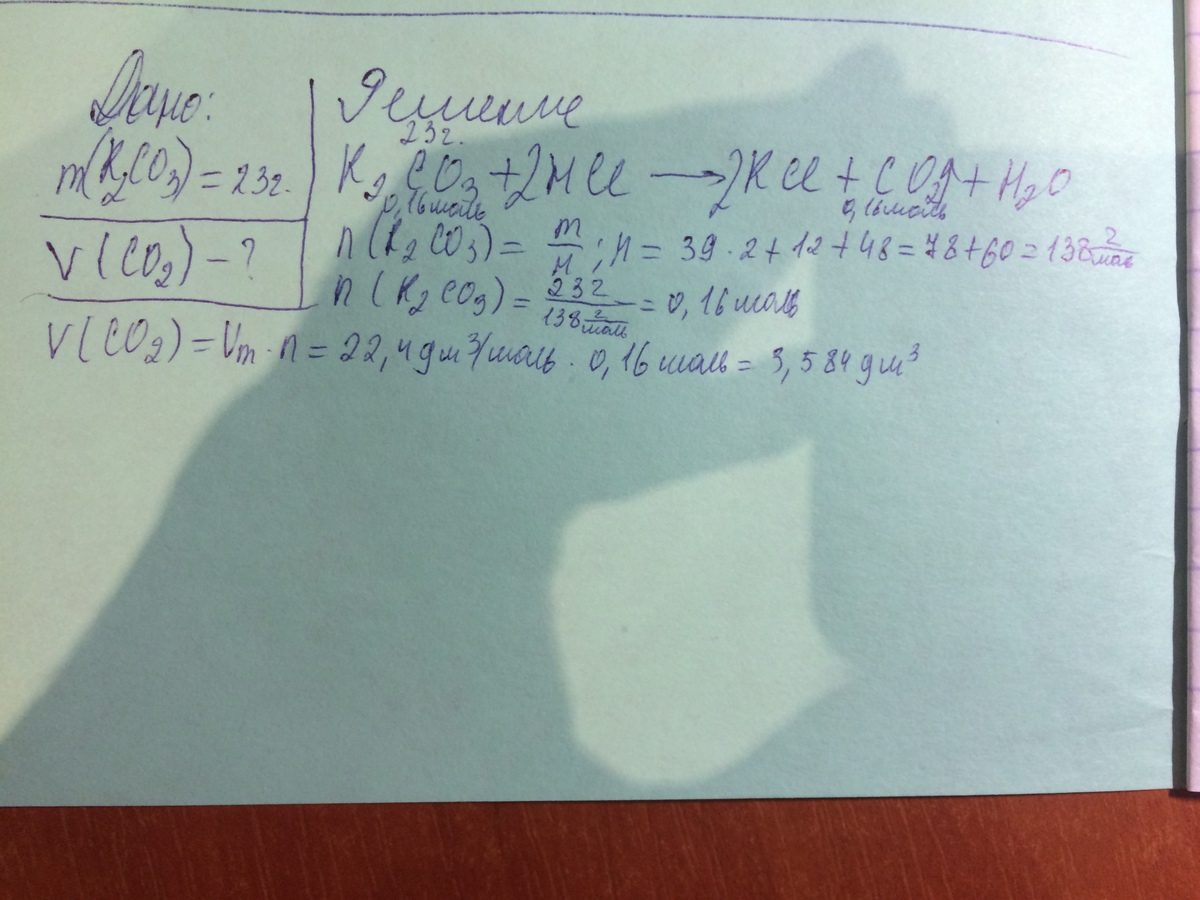 Дано:
m(K₂CO₃) = 23г.
V(CO₂) – ?
Решение
23г.
K₂CO₃ + 2HCl → 2KCl + CO₂↑ + H₂O
0,16моль 0,16моль
n(K₂CO₃) = m/M ; M = 39 · 2 + 12 + 48 = 78 + 60 = 138 г/моль
n(K₂CO₃) = 23г / 138 г/моль = 0,16 моль
V(CO₂) = Vm · n = 22,4дм³/моль · 0,16 моль = 3,584дм³